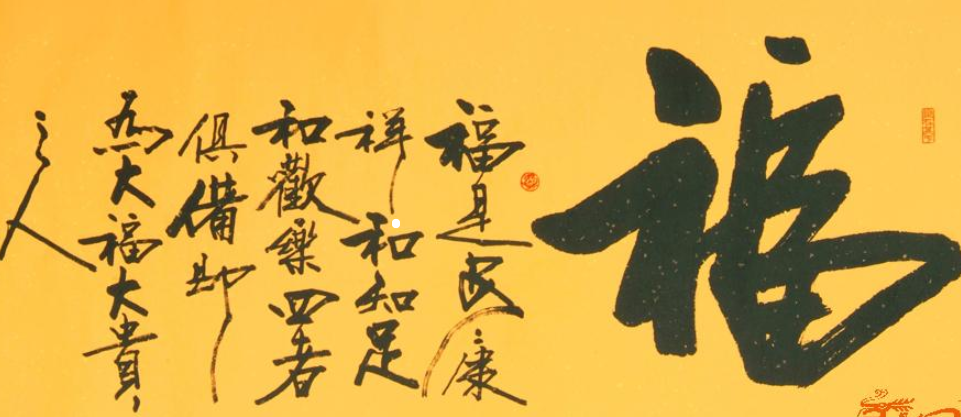 福
福是安康
祥和知足
和歡樂四者
俱備即
為大福大貴，
之人